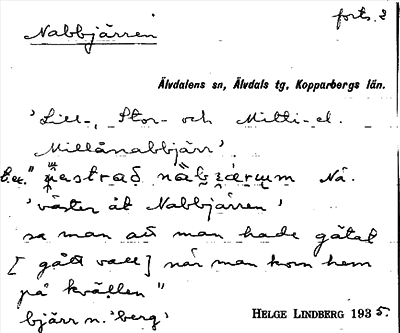 forts. 2
Nabbjärren
Älvdalens sn, Älvdals tg, Kopparbergs län.
'Lill-, Stor- och Mitti- el.
Millånabbjärr'.
t.ex. "
Nå.
'väster åt Nabbjärren'
sa man att man hade gätat
[gått vall] när man kom hem
på kvällen"
bjärr n. 'berg'
HELGE LINDBERG 1935.